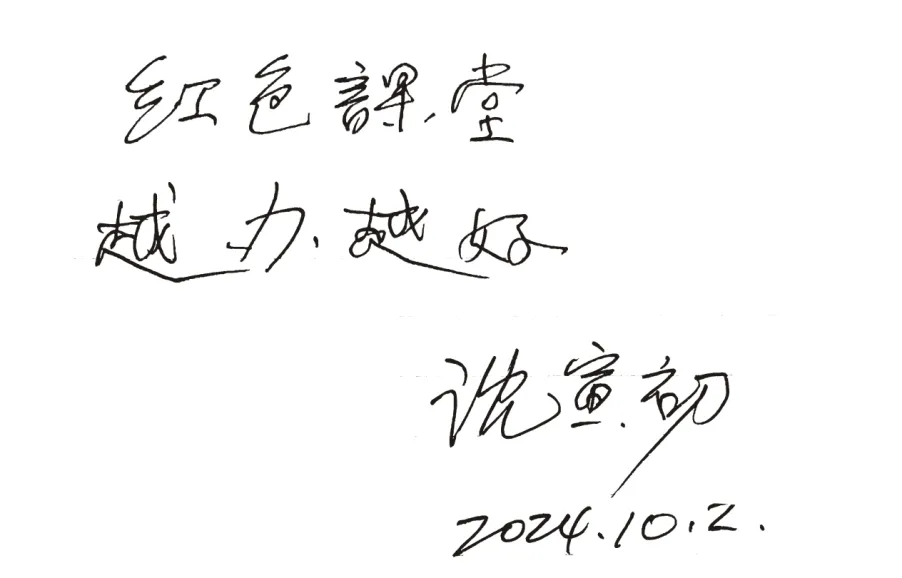 红色課堂
越办越好
沈宣初
2024.10.2.